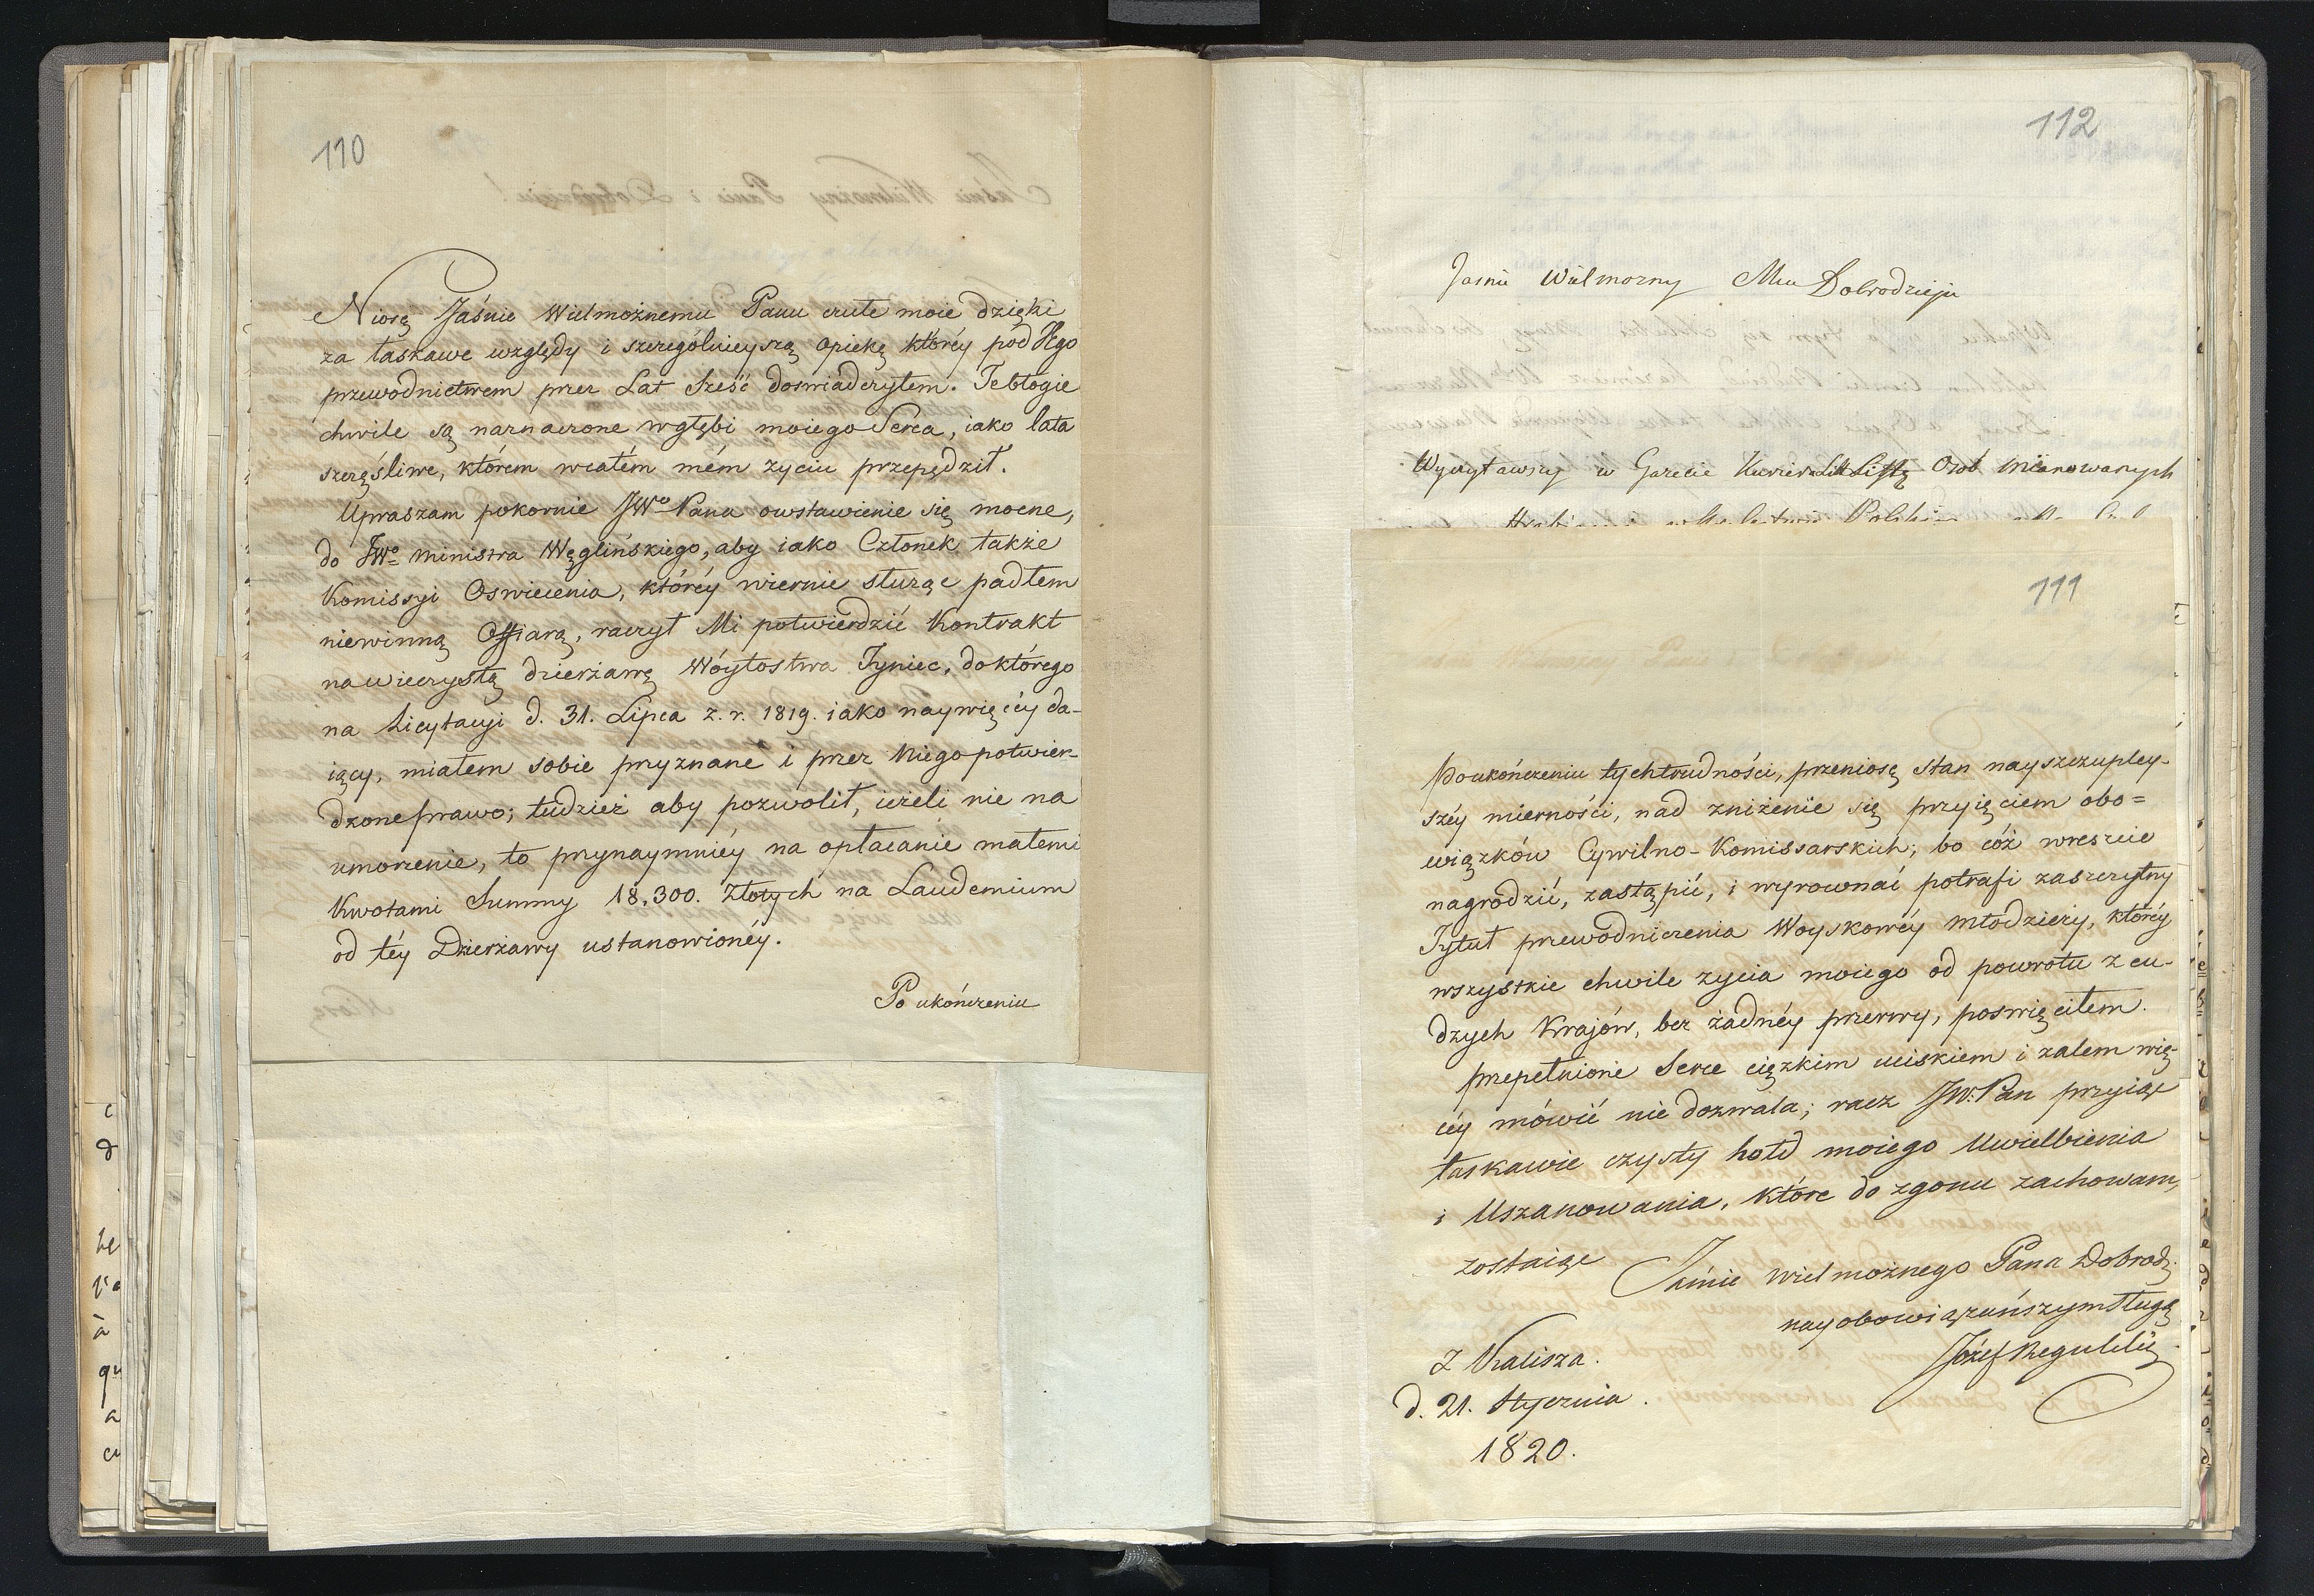 110
Niosę Jaśnie Wielmożnemu Panu czułe moie dzięki
za łaskawe względy i szczególnieyszą opiekę któréy pod Jego
przewodnictwem przez Lat Sześć doswiadczyłem. Te błogie
chwile są naznaczone wgłębi moiego Serca, iako lata
szczęśliwe, którem wcałém mém zyciu przepędził.
Upraszam pokornie JWo Pana owstawienie się mocne,
do JWo Ministra Węglińskiego, aby iako Członek także
Komissyi Oswiecenia, któréy wiernie służąc padłem
niewinną Offiarą, raczył Mi potwierdzić Kontrakt
na wieczystą dzierżawę Wóytostwa Tyniec, do którego
na Licytacyi d. 31. Lipca z. r. 1819. iako naywięcéy da-
iący, miałem sobie przyznane i przez Niego potwier-
dzone prawo; tudzież aby pozwolił, ieżeli nie na
umorzenie, to przynaymniéy na opłacanie małemi
Kwotami Summy 18,300. Złotych na Laudemium
od téy Dzierżawy ustanowionéy.
Po ukończeniu
112
Jasnie Wielmozny Mci Dobrodzieju
Wyczytawszy w Gazecie Listę Osób mianowanych
111
Po ukończeniu tych trudności, przeniosę stan nayszczupley-
széy mierności, nad zniżenie się przyięciem obo=
wiązków Cywilno-Komissarskich; bo cóż wreszcie
nagrodzić, zastąpić, i wyrownać potrafi zaszczytny
Tytuł przewodniczenia Woyskowéy młodzieży, któréy
wszystkie chwile zycia moiego od powrotu z cu-
dzych Krajów, bez żadnéy przerwy, poswięciłem.
Przepełnione Serce ciężkim uciskiem i zalem wię-
céy mówić nie dozwala; racz JW. Pan przyiąć
łaskawie czysty hołd moiego Uwielbienia
i Uszanowania, które do zgonu zachowam,
zostaiąc Jaśnie Wielmożnego Pana Dobrodz.
nayobowiązańszym Sługą
Józef Regulski
Z Kalisza.
d. 21. Stycznia.
1820.